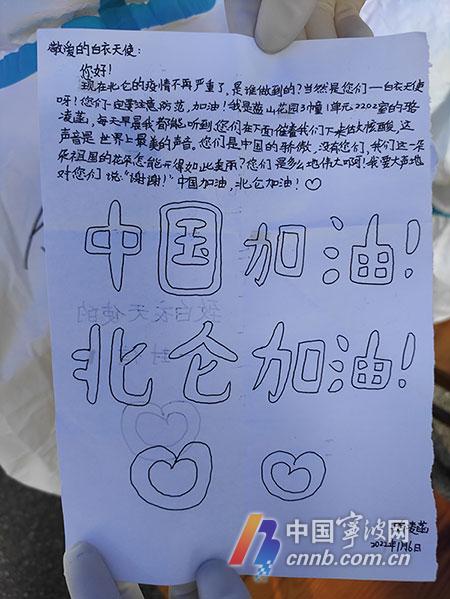 敬爱的白衣天使：
你好！
现在北仑的疫情不再严重了，是谁做到的？当然是你们—白衣天使
呀！你们一定要注意防范，加油！我是蓝山花园3幢1单元2202室的
凌菡，每天早晨我都能听到您们在下面催着我们下来做核酸，这
声音是世界上最美的声音，您们是中国的骄傲，没有您们，我们这一朵
朵祖国的花朵怎能开得如此美丽？您们是多么地伟大啊！我要大声地
对您们说：“谢谢！”中国加油，北仑加油！
中国加油！
致白衣天使的
北仑加油！
凌菡
2022年1月6日
中国宁波网
cnnb.com.cn